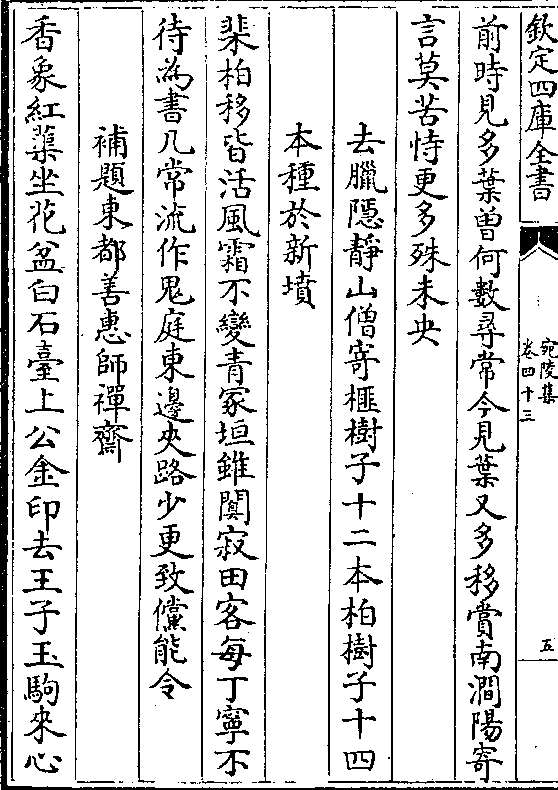 欽定四庫全書
宛陵集
卷四十三
五
前時見多葉曽何數尋常今見葉又多移賞南澗陽寄
言莫苦恃更多殊未央
去臘隱靜山僧寄榧樹子十二本柏樹子十四
本種於新墳
棐柏移皆活風霜不變青冢垣雖闃寂田客每丁寧不
待為書几常流作鬼庭東邊夾路少更致儻能令
補題東都善惠師禪齋
香象紅蕖坐花盆白石臺上公金印去王子玉駒來心